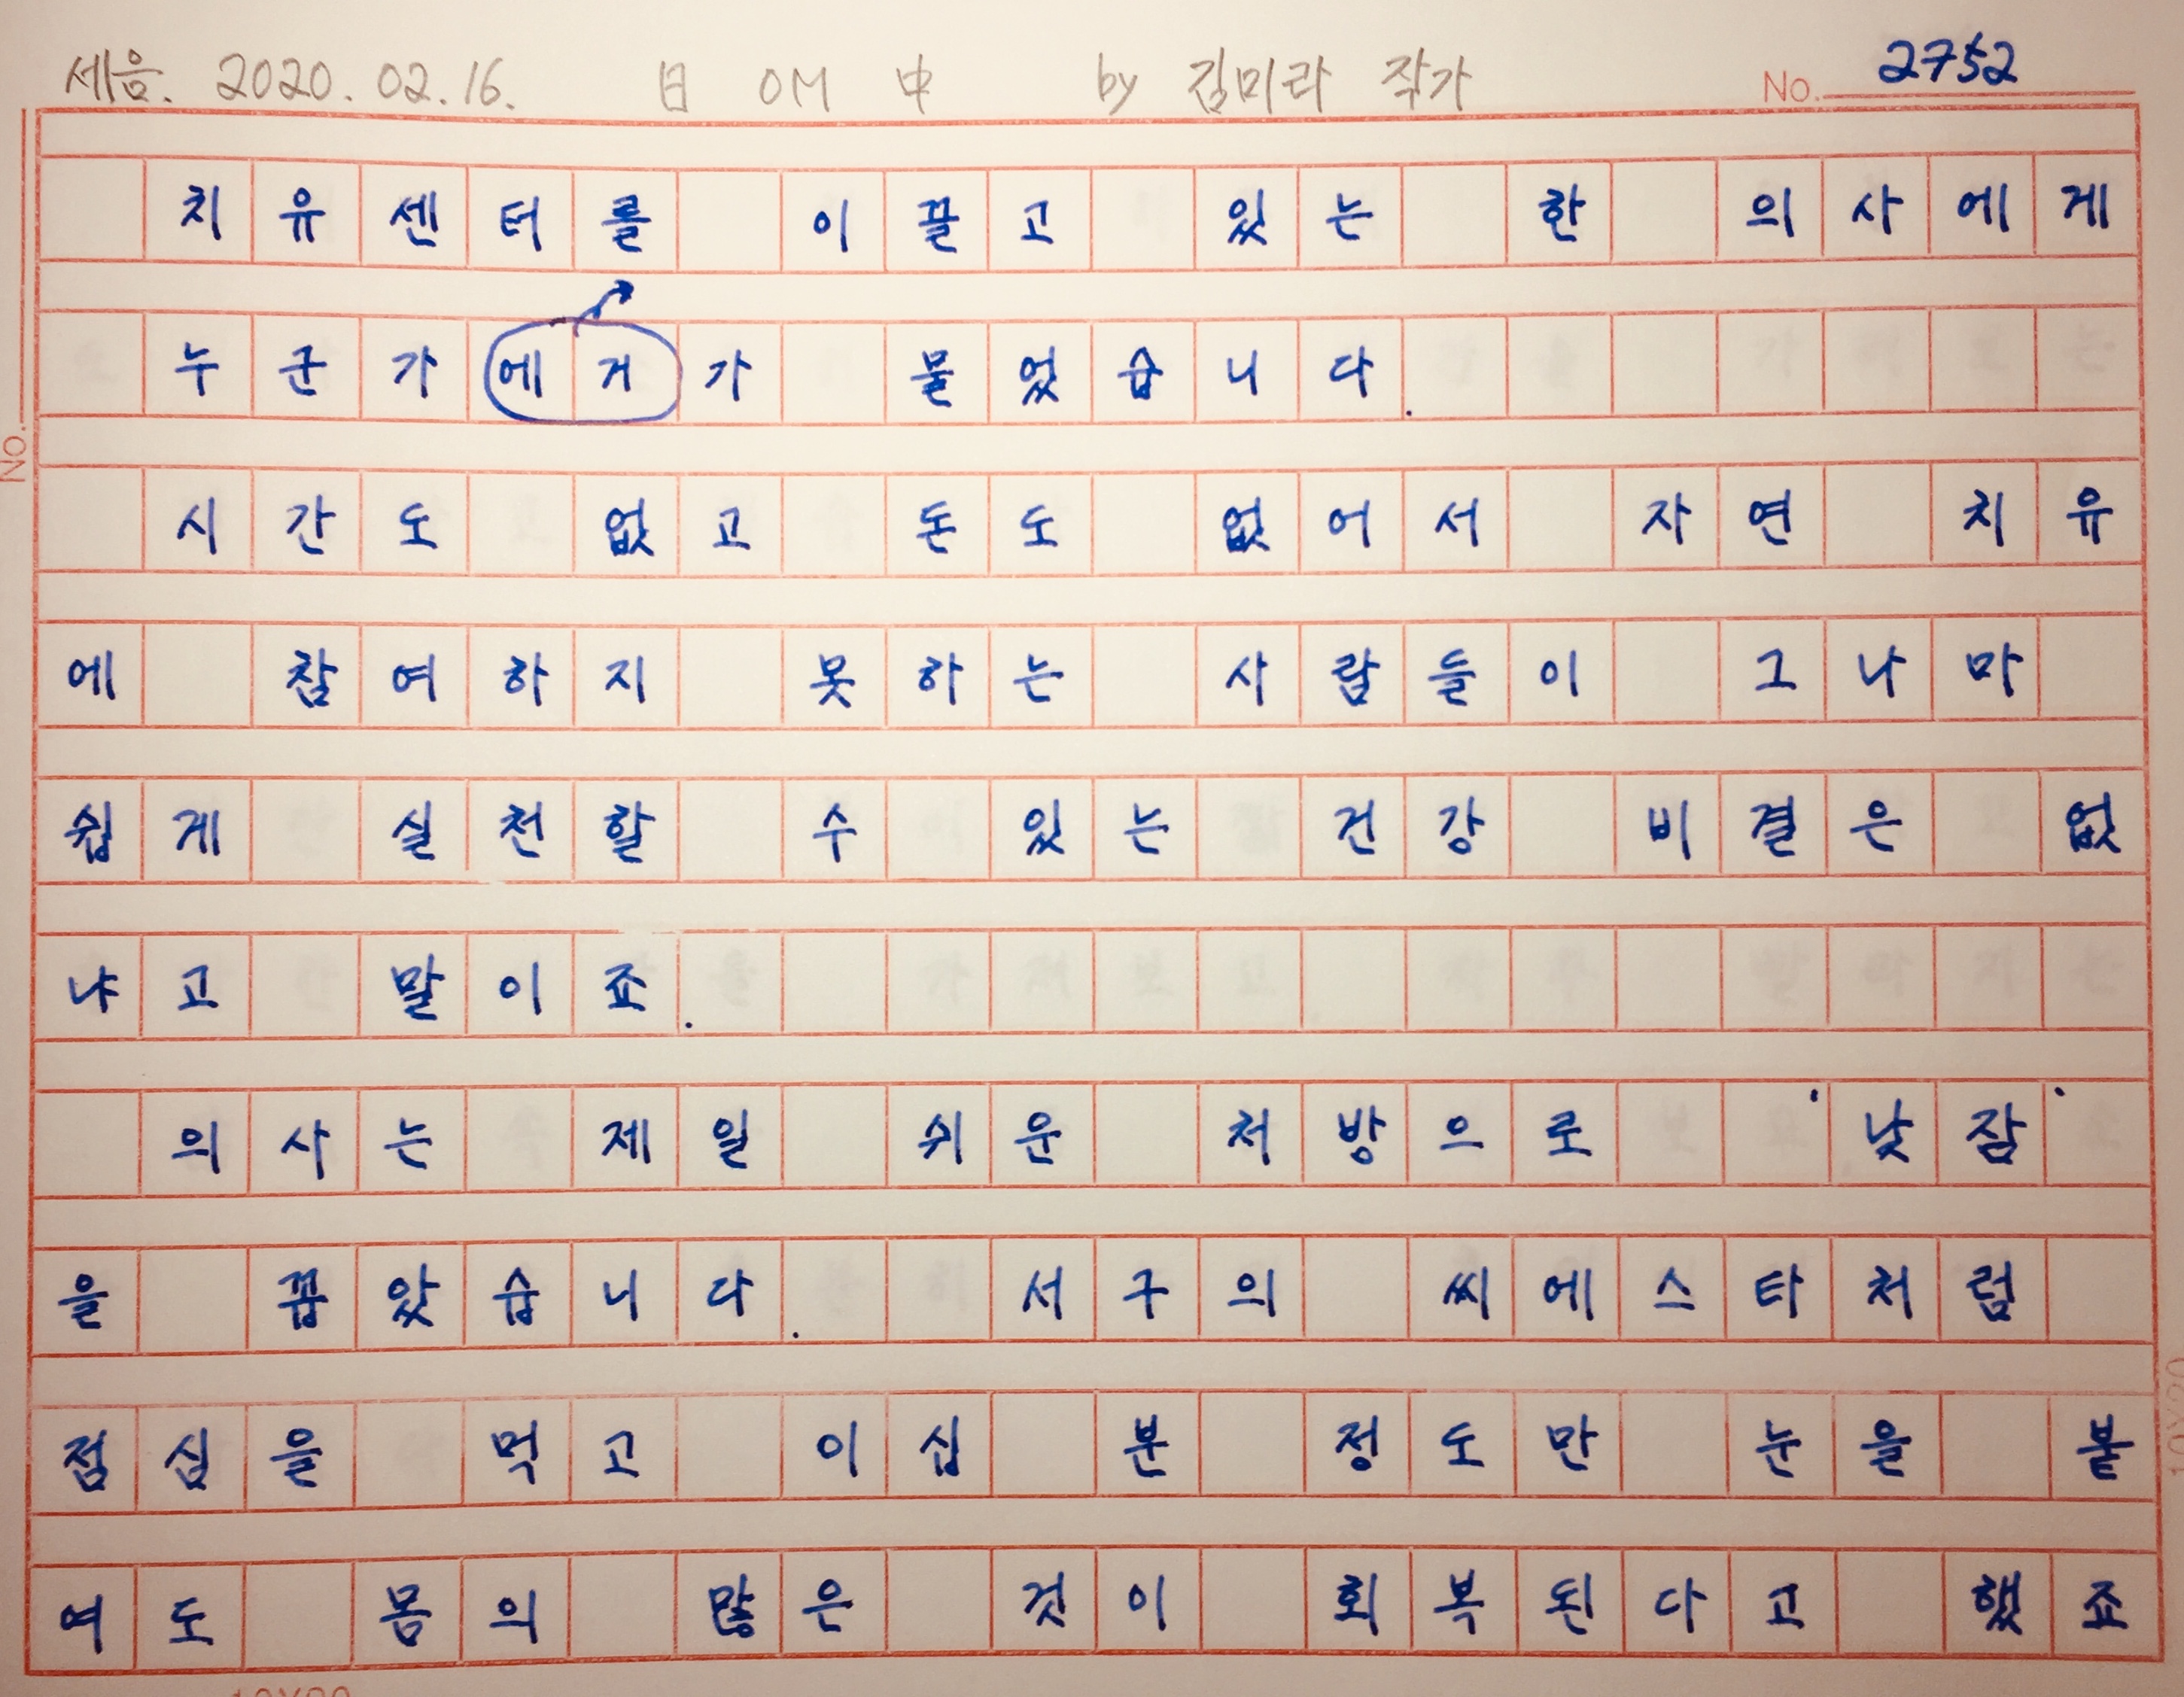 세음. 2020. 02. 16. 日 OM 中 by 김미라 작가 No. 2752
치유센터를 이끌고 있는 한 의사에게
누군가에게가 물었습니다.
No.
시간도 없고 돈도 없어서 자연 치유
에 참여하지 못하는 사람들이 그나마
쉽게 실천할 수 있는 건강 비결은 없
냐고 말이죠.
의사는 제일 쉬운 처방으로 '낮잠'
을 꼽았습니다. 서구의 씨에스타처럼
점심을 먹고 이십 분 정도만 눈을 붙
여도 몸의 많은 것이 회복된다고 했죠